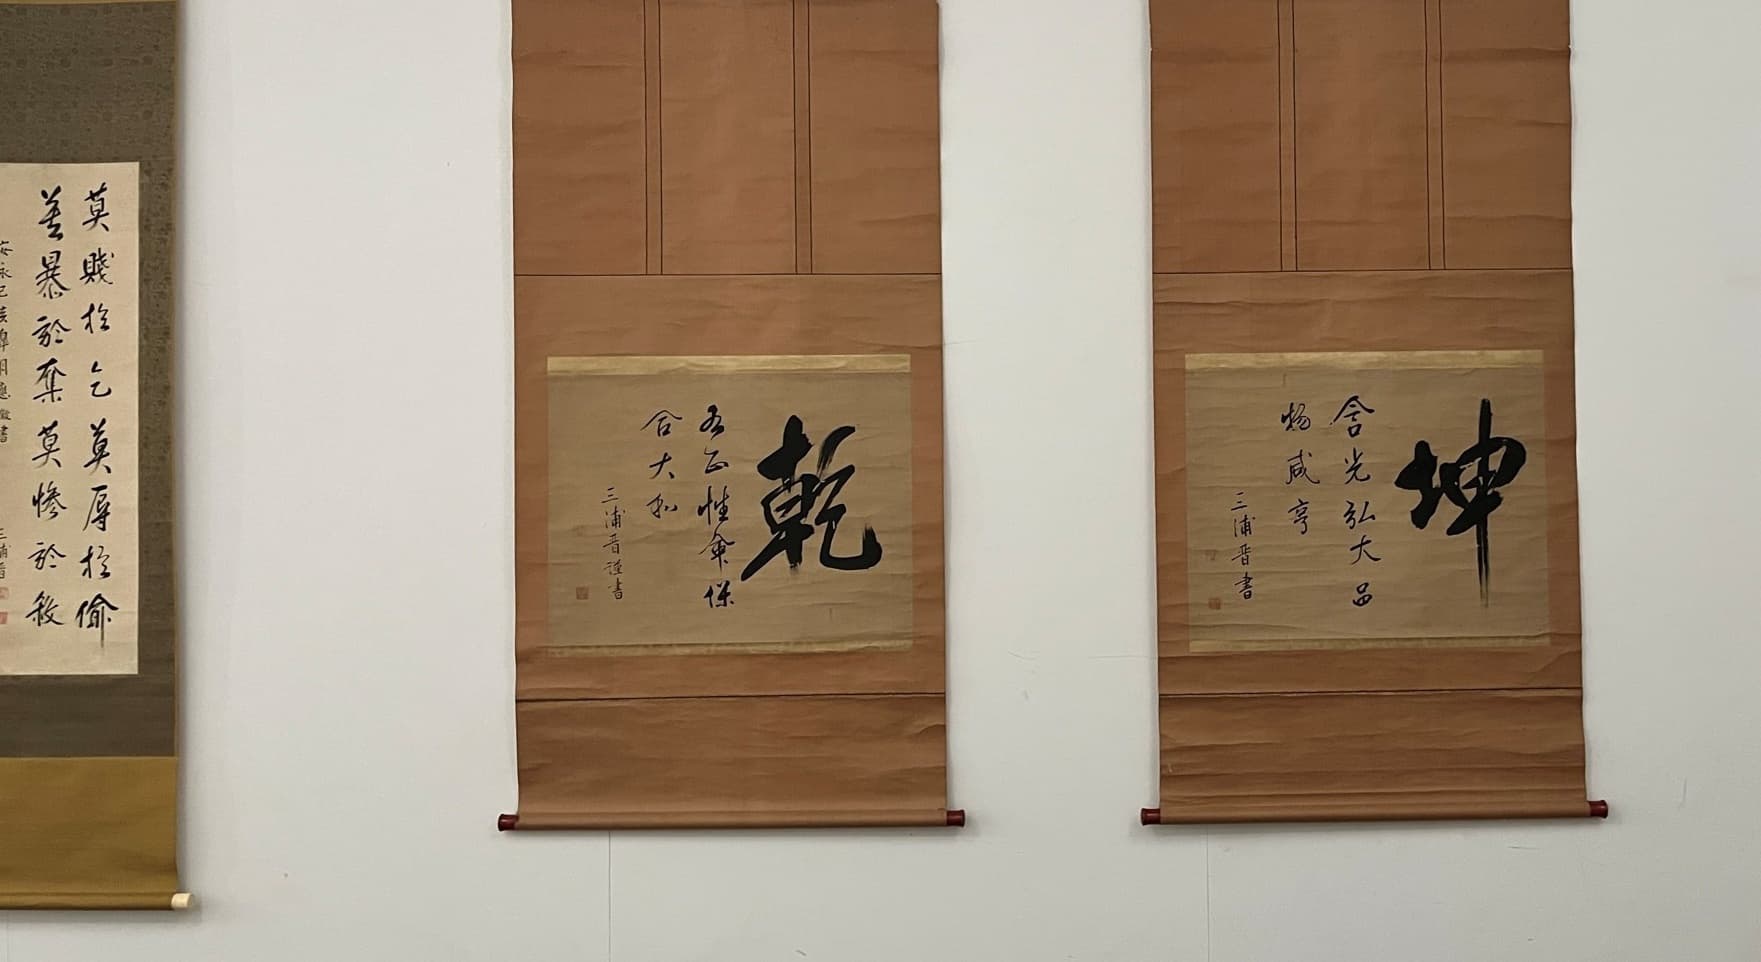 坤
含光弘大品
物咸亨
三浦晋書
乾
各正性命保
合大和
三浦晋謹書
莫賤於乞莫辱於偸
莫暴於奪莫惨於殺
安永己亥 書
三浦晋